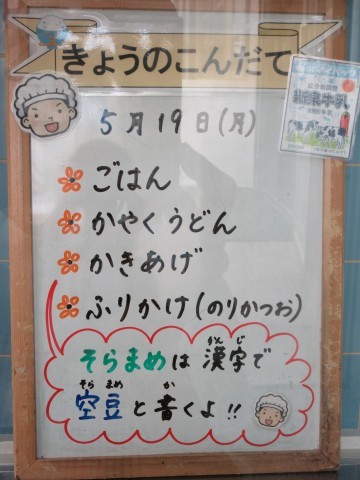 きょうのこんだて
5月19日(月)
ごはん
かやくうどん
かきあげ
ふりかけ(のりかつお)
そらまめは漢字で
かんじ
空豆と書くよ!!
そら まめ か